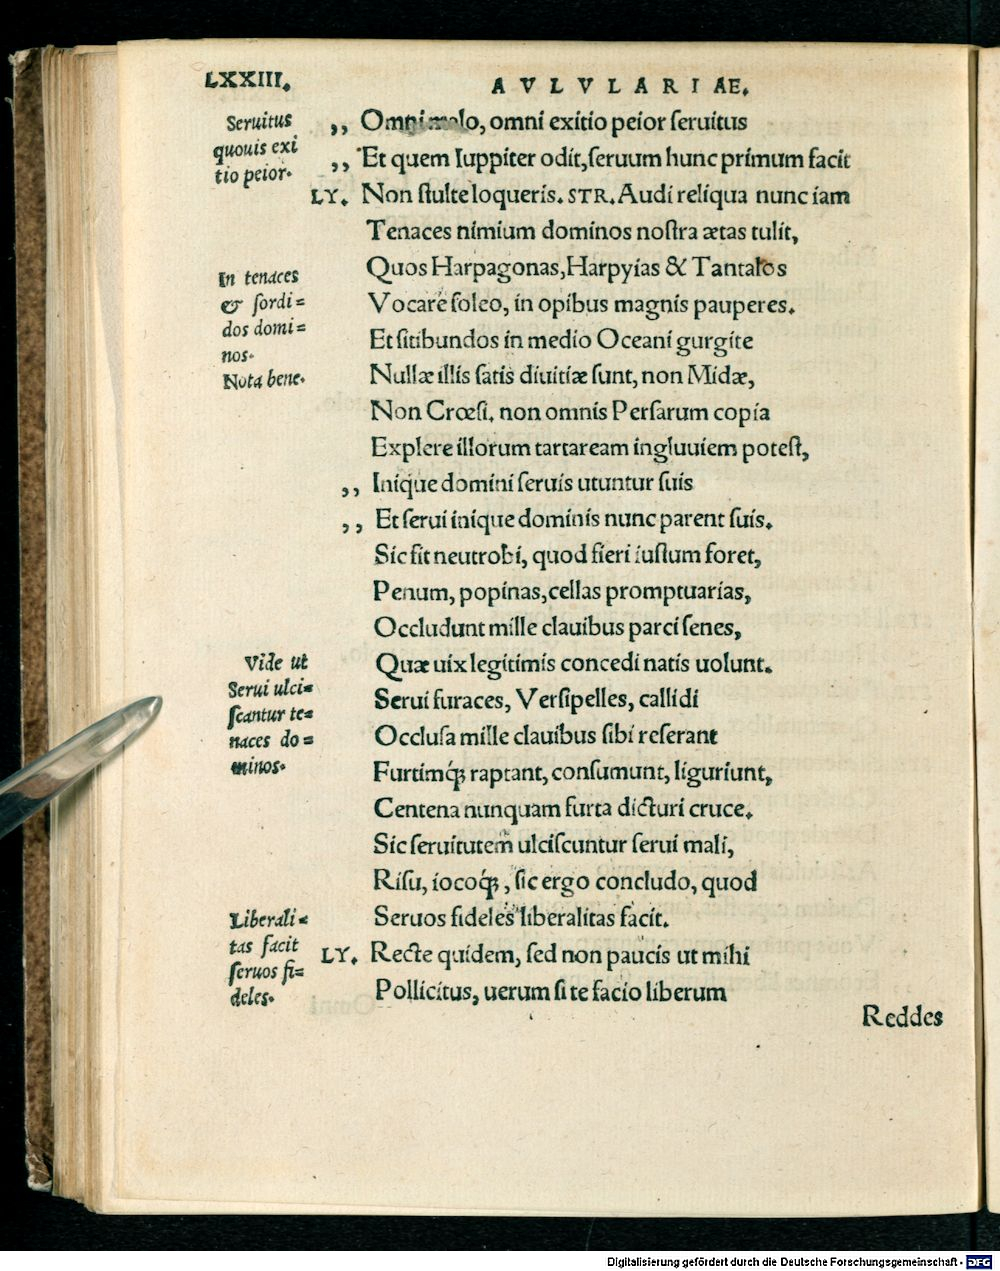 LXXIII. AVLVLARIAE.
Seruitus
quouis exi
tio peior.
,, Omni malo, omni exitio peior ſeruitus
,, Et quem Iuppiter odit, ſeruum hunc primum facit
LY. Non ſtulte loqueris. STR. Audi reliqua nunc iam
Tenaces nimium dominos noſtra ætas tulit,
In tenaces
& ſordi=
dos domi=
nos.
Nota bene.
Quos Harpagonas, Harpyias & Tantalos
Vocare ſoleo, in opibus magnis pauperes.
Et ſitibundos in medio Oceani gurgite
Nullæ illis ſatis diuitiæ ſunt, non Midæ,
Non Crœſi, non omnis Perſarum copia
Explere illorum tartaream ingluuiem poteſt,
,, Inique domini ſeruis utuntur ſuis
,, Et ſerui inique dominis nunc parent ſuis.
Sic fit neutrobi, quod fieri iuſtum foret,
Penum, popinas, cellas promptuarias,
Occludunt mille clauibus parci ſenes,
Vide ut
Serui ulci=
ſcantur te=
naces do=
minos.
Quæ uix legitimis concedi natis uolunt.
Serui furaces, Verſipelles, callidi
Occluſa mille clauibus ſibi reſerant
Furtimq́; raptant, conſumunt, liguriunt,
Centena nunquam furta dicturi cruce.
Sic ſeruitutem ulciſcuntur ſerui mali,
Riſu, iocoq́;, ſic ergo concludo, quod
Liberali=
tas facit
ſeruos fi=
deles.
Seruos fideles liberalitas facit.
LY. Recte quidem, sed non paucis ut mihi
Pollicitus, uerum ſi te facio liberum
Reddes
Digitalisierung gefördert durch die Deutsche Forschungsgemeinschaft - DFG